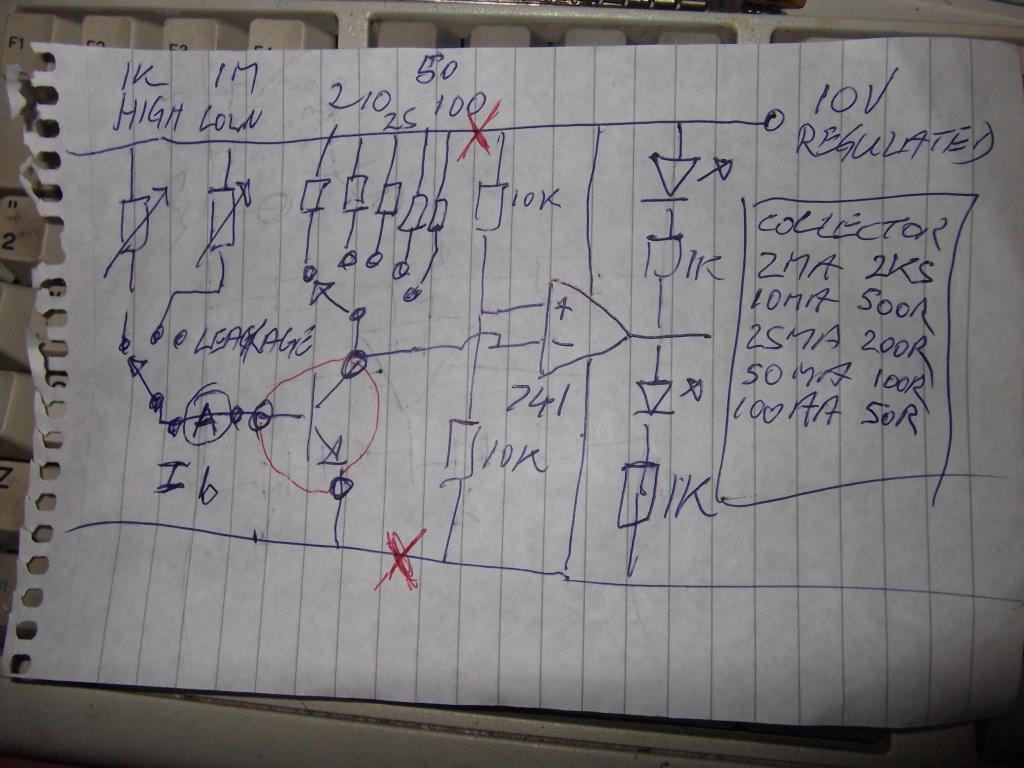 F1 F2 F3 F4
1K 1M
HIGH LOW
50
2 10 25 100
10V
REGULATED
10K
1K
+
-
741
LEAKAGE
A
Ib
10K
1K
COLLECTOR
2MA 2K5
10MA 500R
25MA 200R
50MA 100R
100MA 50R
"
2
Z